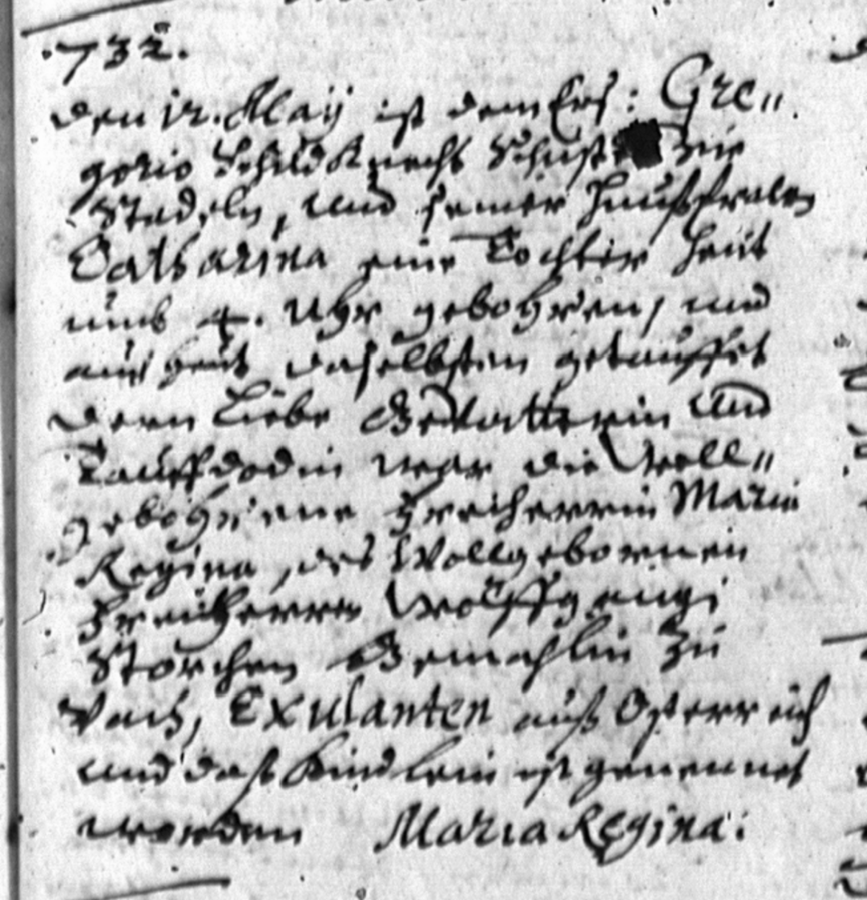 .732.
den 12. Maÿ ist dem Ers: Gre„
gorio Schildknecht Schust zu
Stadeln, und seiner Haußfrawen
Catharina eine Tochter heüt
umb 4. Uhr gebohren, und
auch heüt daselbsten getauffet
deren Liebe Gevatterin und
Tauffdodin war die Woll„
gebohrene Freiherrin Maria
Regina, des Wollgebornen
Freiherrn Wolffgangi
Storchen Gemahlin zu
Vach, Exulanten auß Osterreich
und daß Kindlein ist genennet
worden Maria Regina.